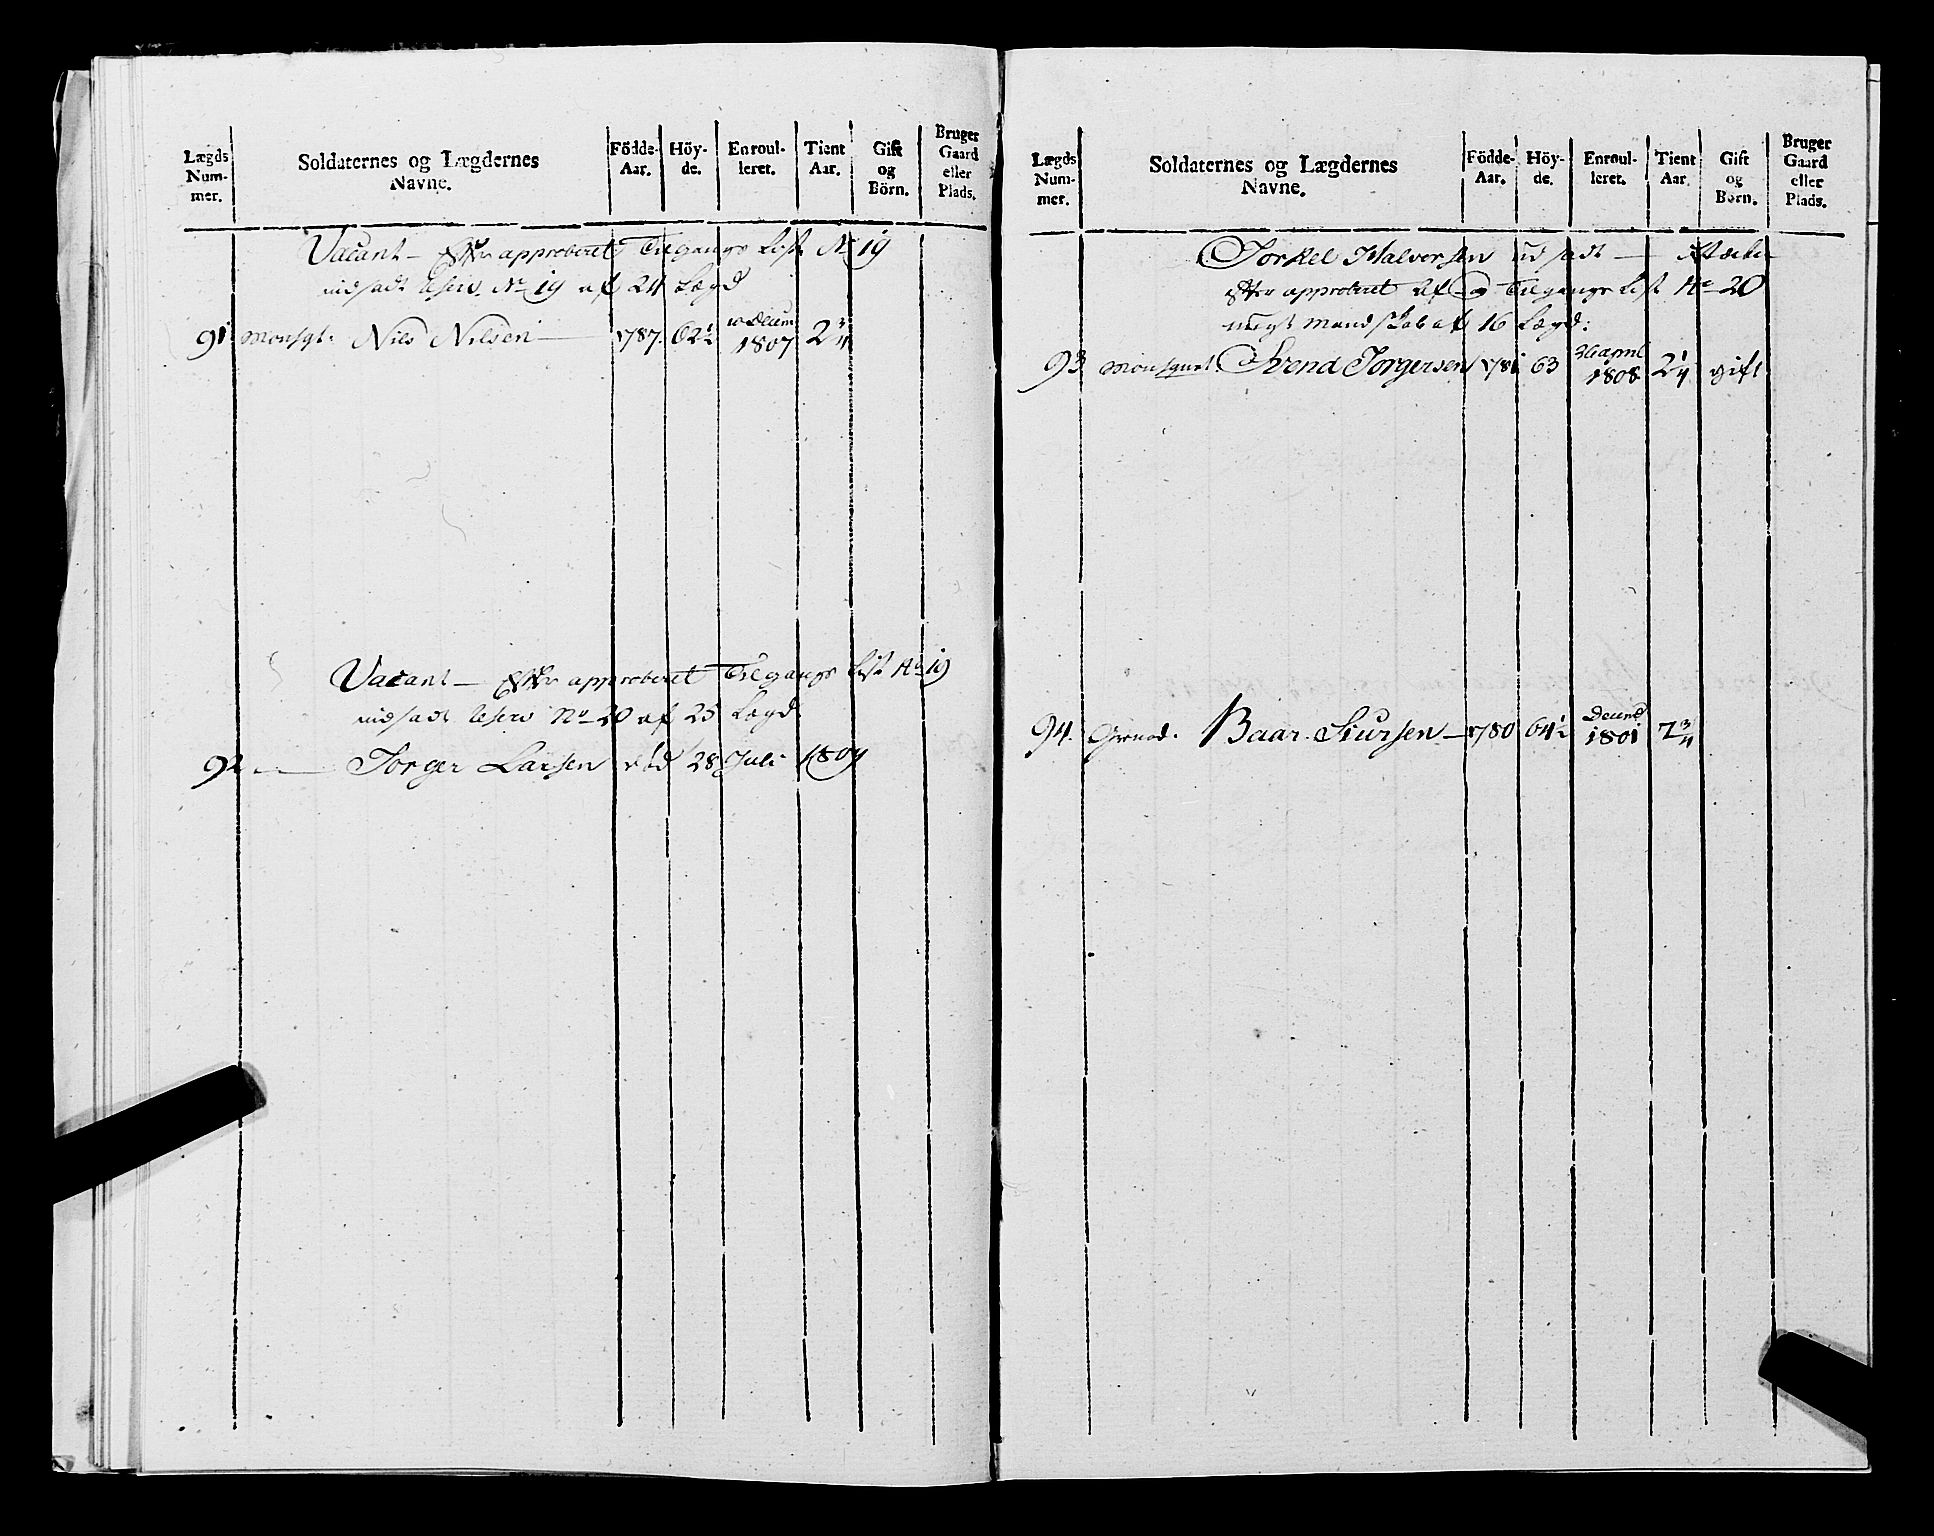 Lægds Num- mer. Soldaternes og Lægdernes Navne. Födde- Aar. Höy- de. Enroul- leret. Tient Aar. Gift og Börn. Bruger Gaard eller Plads.
Vacant — Efter approberet Tilgangs List No 19
indsadt Reserv No 19 af 24 Lægd
91 Monsqt: Nils Nilsen — 1787. 62½ Decem 1807 2¾
Vacant — Efter approberet Tilgangs List No 19
indsadt Reserv No 20 af 25 Lægd
92 — Torger Larsen død 28 Juli 1809
Lægds Num- mer. Soldaternes og Lægdernes Navne. Födde- Aar. Höy- de. Enroul- leret. Tient Aar. Gift og Börn. Bruger Gaard eller Plads.
Torkel Halvorsen udsadt —
efter approberet Af og Tilgangs List No 20
ungt Mandskab af 16 Lægd:
93 Monsquet. Svend Torgersen 1781 63 26 April 1808 2¼ gift
94. Grenad. Baar Siursen — 1780 64½ Decemb 1801 7¾